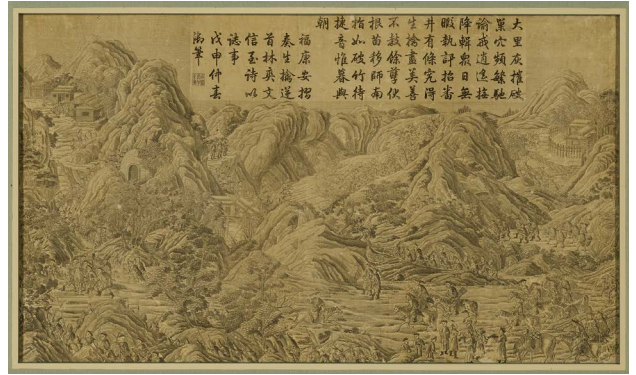 大里灰摧破
巢穴頻繁馳
諭戒逍遙撫
降輯衆日無
暇執訊招番
井有條完淂
生擒盡美善
不教餘孽伏
根苗移師南
指如破竹待
捷音惟暮與
朝
福康安摺
奏生擒逆
首林爽文
信至詩以
誌事
戊申仲春
御筆